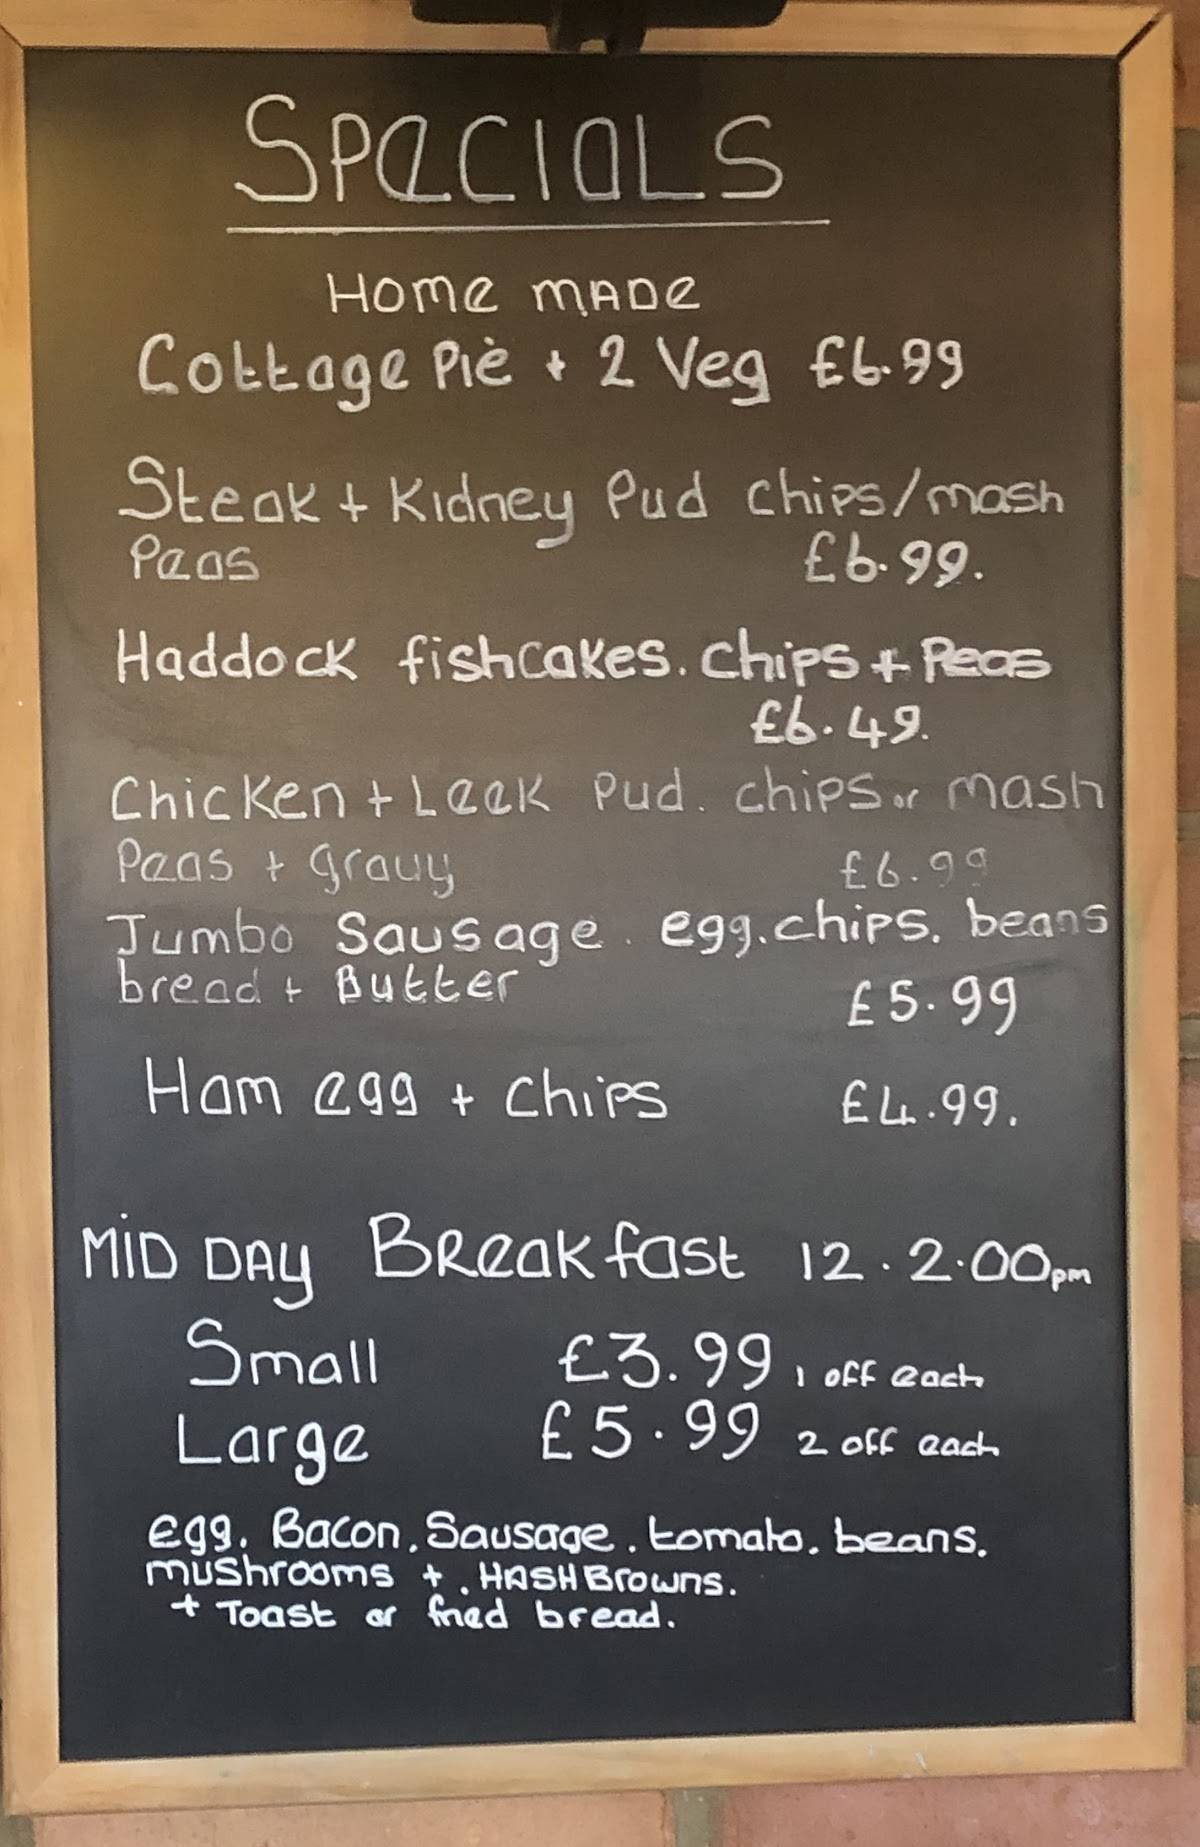 SPECIALS
HOME MADE
Cottage Pie + 2 Veg £6.99
Steak + Kidney Pud chips/mash
Peas £6.99.
Haddock fishcakes. chips + Peas
£6.49.
Chicken + Leek Pud. chips or mash
Peas + gravy £6.99
Jumbo Sausage. egg. chips. beans
bread + Butter £5.99
Ham egg + chips £4.99.
MID DAY Breakfast 12.2.00pm
Small £3.99 1 off each
Large £5.99 2 off each
egg. Bacon. Sausage. tomato. beans.
mushrooms + . HASH Browns.
+ Toast or fried bread.